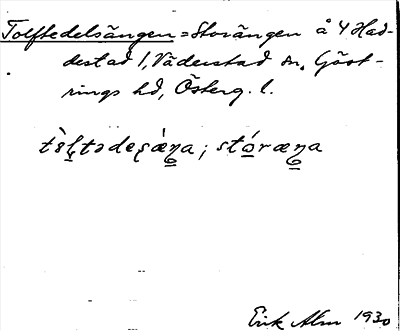 Tolftedelsängen = Storängen å 4 Had-
destad 1, Väderstad sn. Göst-
rings hd, Österg. l.
tɵ̀ltədesæ̀ŋa; stóræŋa
Erik Alm 1930